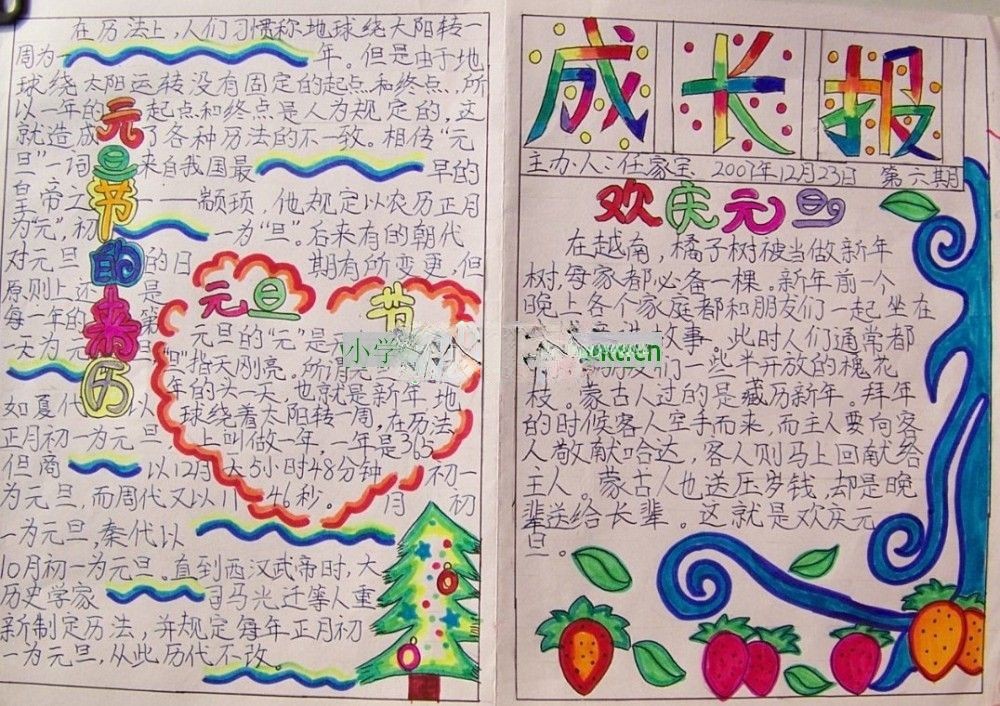 在历法上，人们习惯称地球绕太阳转一
周为一年。但是由于地
球绕太阳运转没有固定的起点和终点，所
以一年的起点和终点是人为规定的，这
就造成了各种历法的不一致。相传“元
旦”一词来自我国最早的
皇帝之一——颛顼，他规定以农历正月
为“元”，初一为“旦”。后来有的朝代
对元旦的日期有所变更，但
原则上还是
每一年的第
一天为元旦
如夏代以
正月初一为元旦
但商以12月初一
为元旦，而周代又以11月初
一为元旦，秦代以
10月初一为元旦。直到西汉武帝时，大
历史学家司马光迁等人重
新制定历法，并规定每年正月初
一为元旦，从此历代不改。
元旦节的来历
元旦节
元旦的“元”是
“旦”指天刚亮，所
年的头一天，也就是新年，地
球绕着太阳转一周，在历法
上叫做一年，一年是365
天5小时48分钟
46秒。
小学
成长报
主办人：任家宝 2007年12月23日 第六期
欢庆元旦
在越南，橘子树被当做新年
树，每家都必备一棵。新年前一个
晚上各个家庭都和朋友们一起坐在
故事，此时人们通常都
友们一些半开放的槐花
枝。蒙古人过的是藏历新年。拜年
的时候客人空手而来，而主人要向客
人敬献哈达，客人则马上回献给
主人。蒙古人也送压岁钱，却是晚
辈送给长辈。这就是欢庆元
旦。